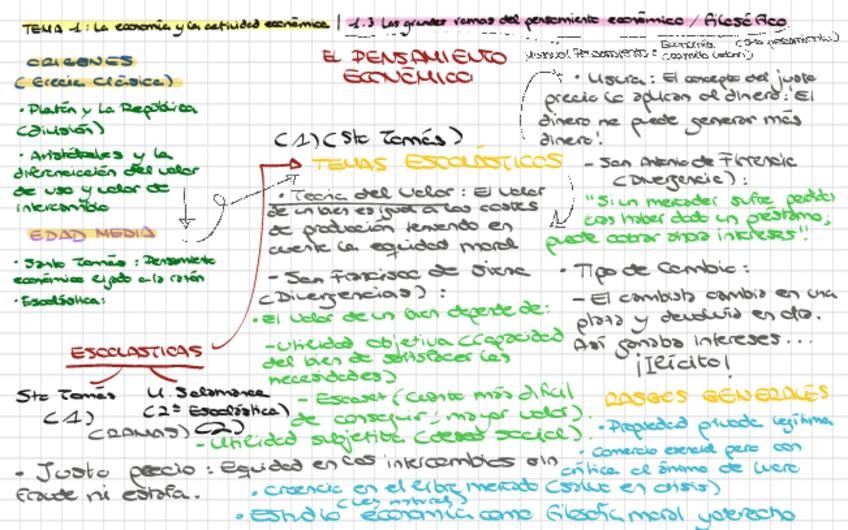 TEMA - 1 : La economía y la actividad económica | 1.3 Las grandes ramas del pensamiento económico / filosófico
EL PENSAMIENTO
ECONÓMICO
ORIGENES
(Grecia Clásica)
• Platón y La República
(división)
• Aristóteles y la
diferenciación del valor
de uso y valor de
intercambio
EDAD MEDIA
• Santo Tomás : Pensamiento
económico ligado a la razón
• Escolástica:
ESCOLASTICAS
Sto Tomás
(1)
U. Salamanca
(2ª Escolástica)
(RAMAS) (2)
(1) (Sto Tomás)
TEMAS ESCOLÁSTICOS
• Teoría del Valor : El valor
de un bien es igual a los costes
de producción teniendo en
cuenta la equidad moral
- San Francisco de Siena
(Divergencias) :
• El valor de un bien depende de:
- Utilidad objetiva (capacidad
del bien de satisfacer las
necesidades)
- Escasez (cuanto más difícil
de conseguir, mayor valor).
- Utilidad subjetiva (deseo social).
• Justo precio : Equidad en los intercambios sin
fraude ni estafa.
• Usura : El concepto del justo
precio lo aplican al dinero: El
dinero no puede generar más
dinero!
- San Antonio de Florencia
(Divergencia) :
"Si un mercader sufre perdidas
tras haber dado un préstamo,
puede cobrar ahora intereses!!"
• Tipo de Cambio :
- El cambista cambia en una
plaza y devolvía en otra.
Así ganaba intereses...
¡Ilícito!
RASGOS GENERALES
• Propiedad privada legítima
• Comercio esencial pero con
crítica al ánimo de lucro
• Creencia en el libre mercado (salvo en crisis)
(Ley natural)
• Estudio economía como filosofía moral y derecho